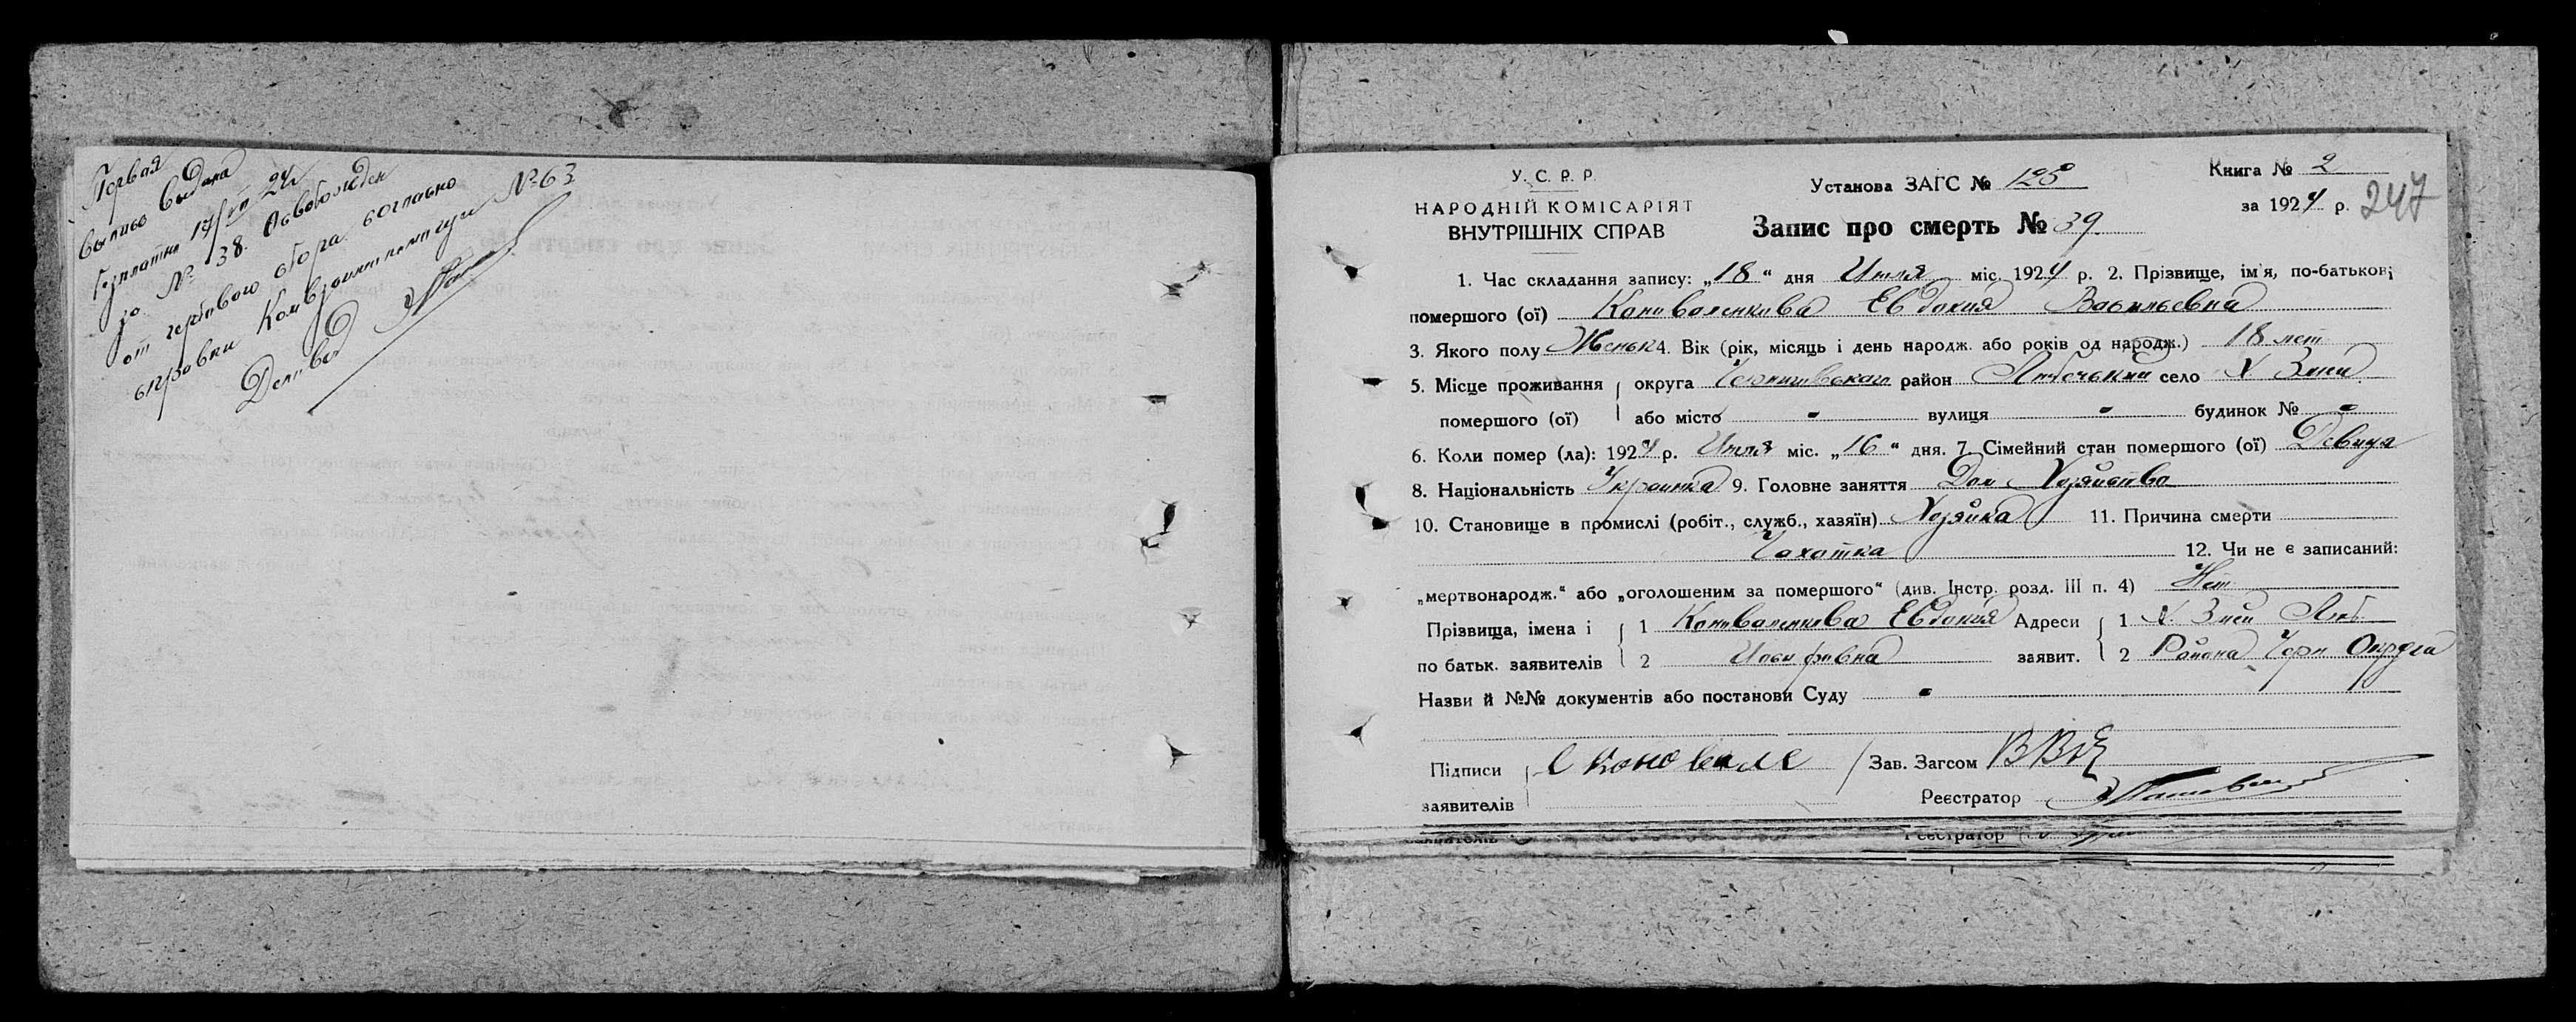 Первая
выпись выдана
безплатно 19/VII 24 г
за № 38. Освобожден
от гербового сбора согласно
справки Комвзаимпомощи № 63
Делов
У.С.Р.Р.
НАРОДНІЙ КОМІСАРІЯТ
ВНУТРІШНІХ СПРАВ
Установа ЗАГС № 125
Запис про смерть № 39.
Книга № 2
за 1924 р. 247
1. Час складання запису: „18“ дня Июля міс. 1924 р. 2. Прізвище, ім'я, по-батькові
помершого (ої) Коноваленкова Евдокия Васильевна
3. Якого полу Женьк 4. Вік (рік, місяць і день народж. або років од народж.) 18 лет
5. Місце проживання округа Черниговского район Любечькии село Х. Змеи
помершого (ої) або місто - вулиця - будинок № -
6. Коли помер (ла): 1924 р. Июля міс. „16“ дня. 7. Сімейний стан помершого (ої) Девица
8. Національність Украинка 9. Головне заняття Дом Хозяйство
10. Становище в промислі (робіт., служб., хазяїн) Хозяйка 11. Причина смерти
Чахотка 12. Чи не є записаний:
„мертвонародж.“ або „оголошеним за помершого“ (див. Інстр. розд. III п. 4) Нет
Прізвища, імена і 1 Коноваленкова Евдокия Адреси 1 Х. Змеи Люб
по батьк. заявителів 2 Иосифовна заявит. 2 Района Черн Округа
Назви й №№ документів або постанови Суду -
Підписи Е Коновале Зав. Загсом
заявителів Реєстратор
заявителів Реєстратор